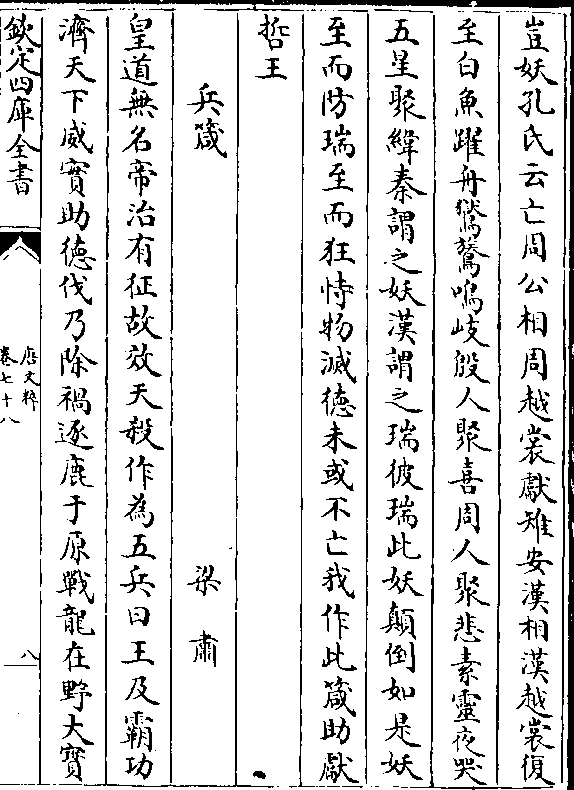 豈妖孔氏云亡周公相周越裳獻雉安漢相漢越裳復
至白魚躍舟鸑鷟鳴岐殷人聚喜周人聚悲素靈夜哭
五星聚緯秦謂之妖漢謂之瑞彼瑞此妖顛倒如是妖
至而防瑞至而狂恃物滅徳未或不亡我作此箴助獻
哲王
兵箴 梁肅
皇道無名帝治有征故效天殺作為五兵曰王及霸功
濟天下威實助徳伐乃除禍逐鹿于原戰龍在野大寳
欽定四庫全書
唐文粹
卷七十八
八